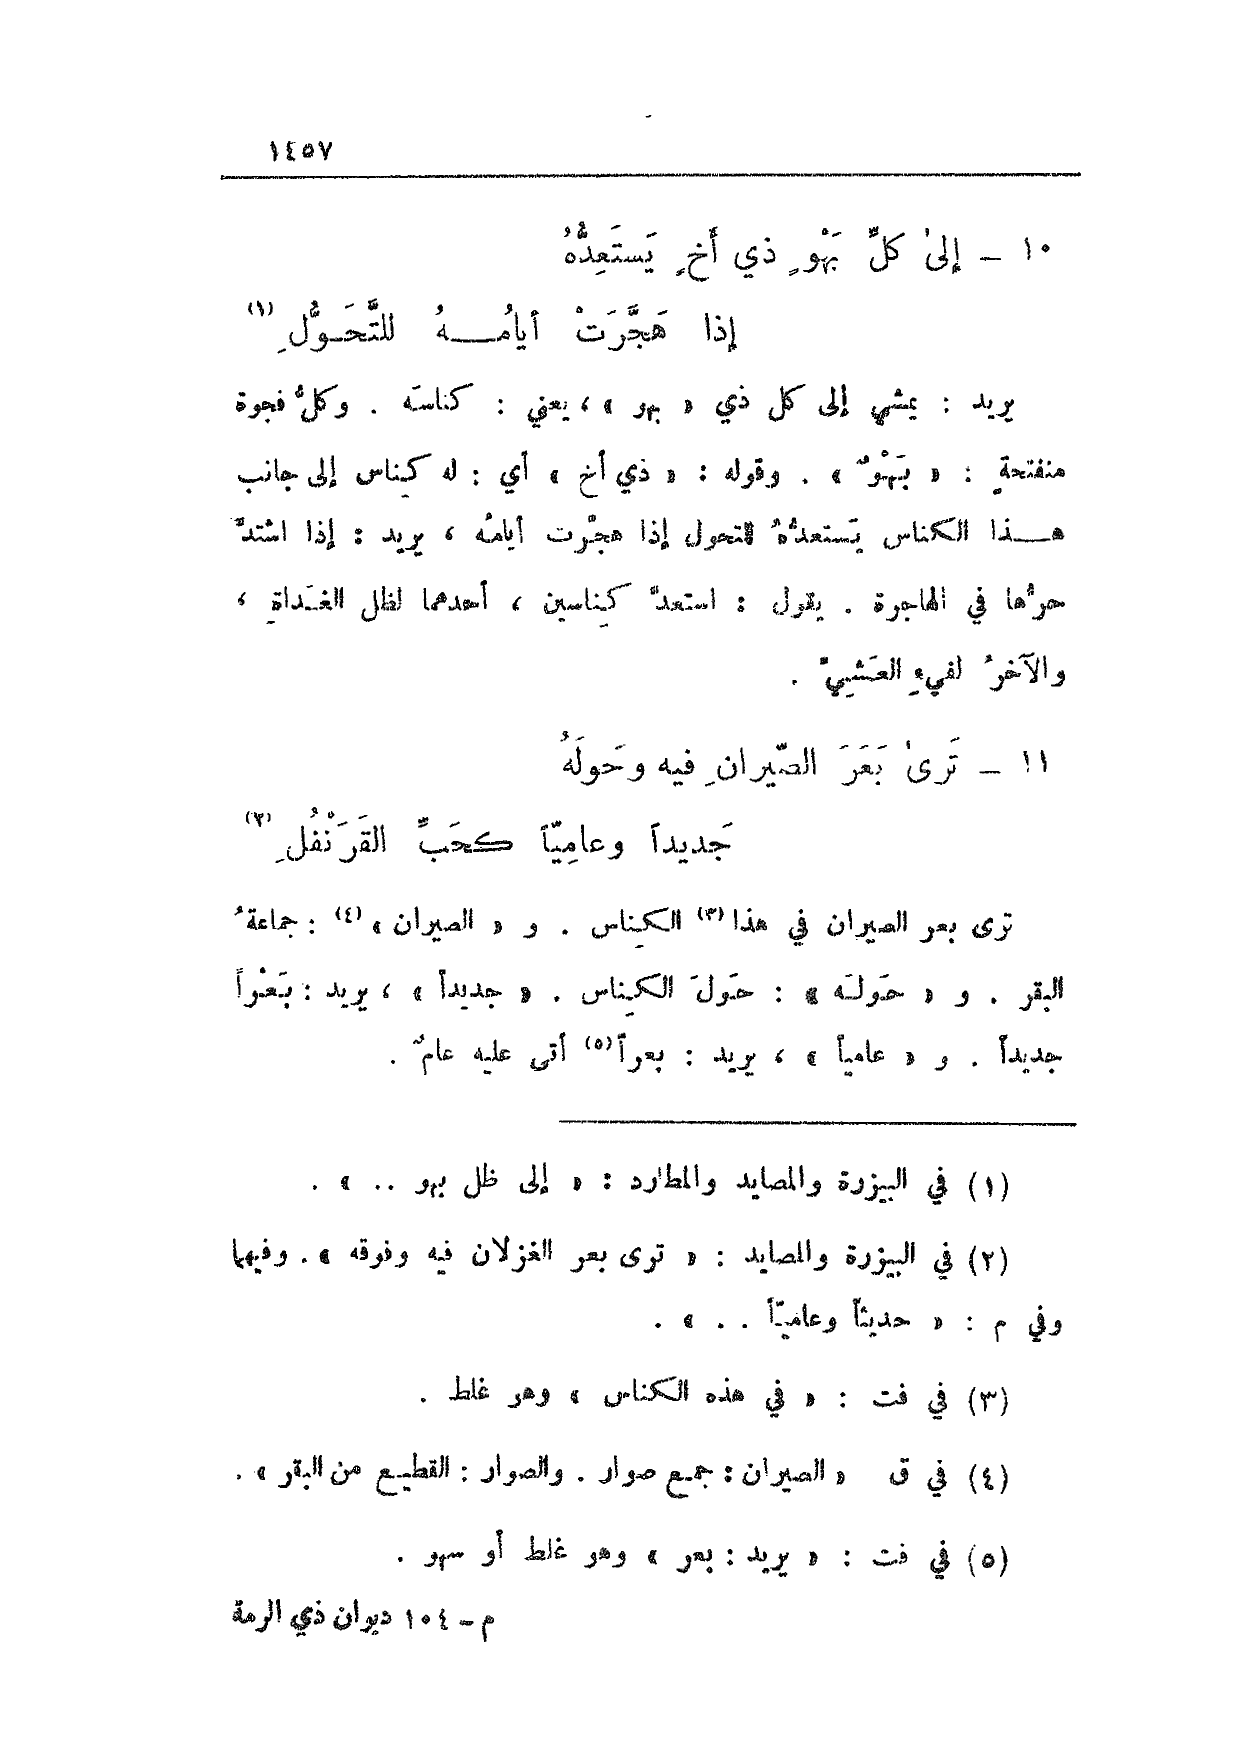 ١٤٥٧
١٠ – إلىٰ كلِّ بَهْوٍ ذي أَخٍ يَستَعِدُّهُ
إذا هَجَّرَتْ أيامُــهُ للتَّحَــوُّلِ (١)
يريد : يمشي إلى كل ذي « بهو » ، يعني : كناسَه . وكلُّ فجوة
منفتحةٍ : « بَهْوٌ » . وقوله : « ذي أخ » أي : له كِناس إلى جانب
هــذا الكناس يَستعدُّهُ للتحول إذا هجّرت أيامُه ، يريد : إذا اشتدَّ
حرُّها في الهاجرة . يقول : استعدَّ كِناسين ، أحدهما لظل الغَداةِ ،
والآخرُ لفيءِ العَشِيِّ .
١١ – تَرىٰ بَعَرَ الصِّيرانِ فيه وحَولَهُ
جَديداً وعامِيّاً كحَبِّ القَرَنْفُلِ (٢)
ترى بعر الصيران في هذا (٣) الكِناس . و « الصيران » (٤) : جماعةُ
البقر . و « حَولَه » : حَولَ الكِناس . « جديداً » ، يريد : بَعْراً
جديداً . و « عامياً » ، يريد : بعراً (٥) أتى عليه عامٌ .
(١) في البيزرة والمصايد والمطارد : « إلى ظل بهو .. » .
(٢) في البيزرة والمصايد : « ترى بعر الغزلان فيه وفوقه » . وفيهما
وفي م : « حديثاً وعاميّاً . . » .
(٣) في فت : « في هذه الكناس » وهو غلط .
(٤) في ق « الصيران : جمع صوار . والصوار : القطيع من البقر » .
(٥) في فت : « يريد : بعر » وهو غلط أو سهو .
م – ١٠٤ ديوان ذي الرمة